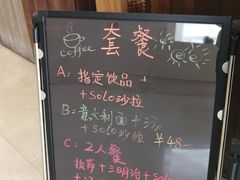 coffee
套餐
A: 指定饮品 +
+ solo沙拉
B: 意大利面 +
+ solo沙拉 ¥48
C: 2人餐
披萨 + 三明治 + solo